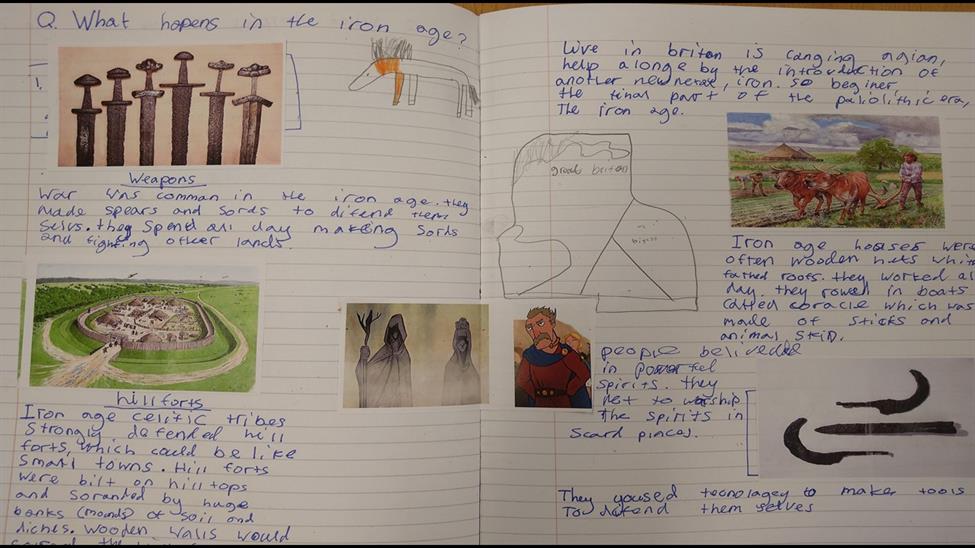 Q. What hapens in the iron age?
Weapons
War was comman in the iron age. they
made spears and sords to difend them
selvs. they spend all day making sords
and fighting other lands.
hill forts
Iron age celtic tribes
strongly defended hill
forts, which could be like
small towns. Hill forts
were bilt on hill tops
and soranded by huge
banks (mounds) of soil and
diches. Wooden walls would
Live in briton is canging agian,
help alonge by the introuduction of
another new metal, iron. so beginer
the final part of the paliolithic era,
The iron age.
great briton
Iron age houses were
often wooden huts with
roofs. they worked all
day. they rowed in boats
called coracle which was
made of sticks and
animal skin.
people belivede
in powerfel
spirits. they
met to worship
the spirits in
scard places.
They youssed tecnolagey to maker tools
To defend them selves